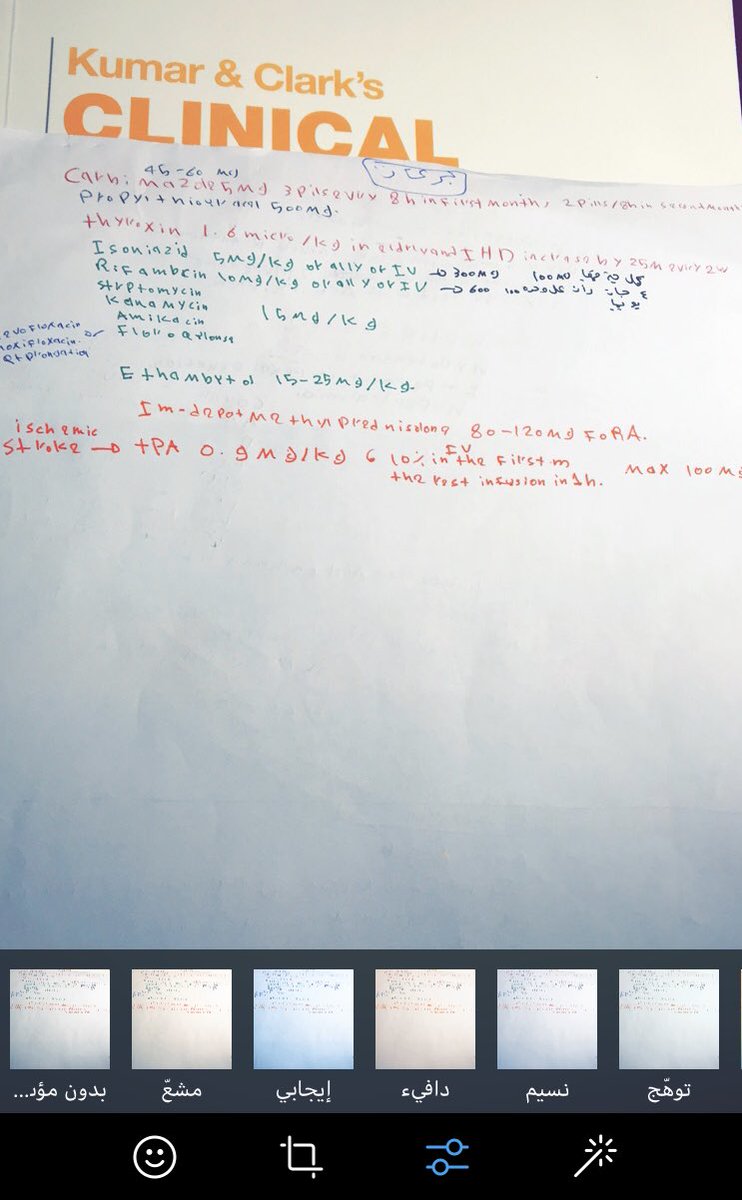 Kumar & Clark's
CLINICAL
45-60 mg
Carbimazole 5mg 3 pills every 8h in first month, 2 pills/8h in second month
propylthiouracil 500mg.
thyroxin 1.6 micro/kg in elderly and IHD increase by 25M every 2w
Isoniazid 5mg/kg orally or IV → 300mg 100mg
Rifambcin 10mg/kg orally or IV → 600
streptomycin
Kanamycin
Amikacin 15mg/kg
or Floroqylonse
Levofloxacin
moxifloxacin
Ethambutol 15-25mg/kg.
Im-depot Methylprednisolone 80-120mg FoRA.
ischemic
stroke → tPA 0.9mg/kg 10% IV in the first m
the rest infusion in 1h. Max 100mg
بدون مؤث...
مشعّ
إيجابي
دافيء
نسيم
توهّج